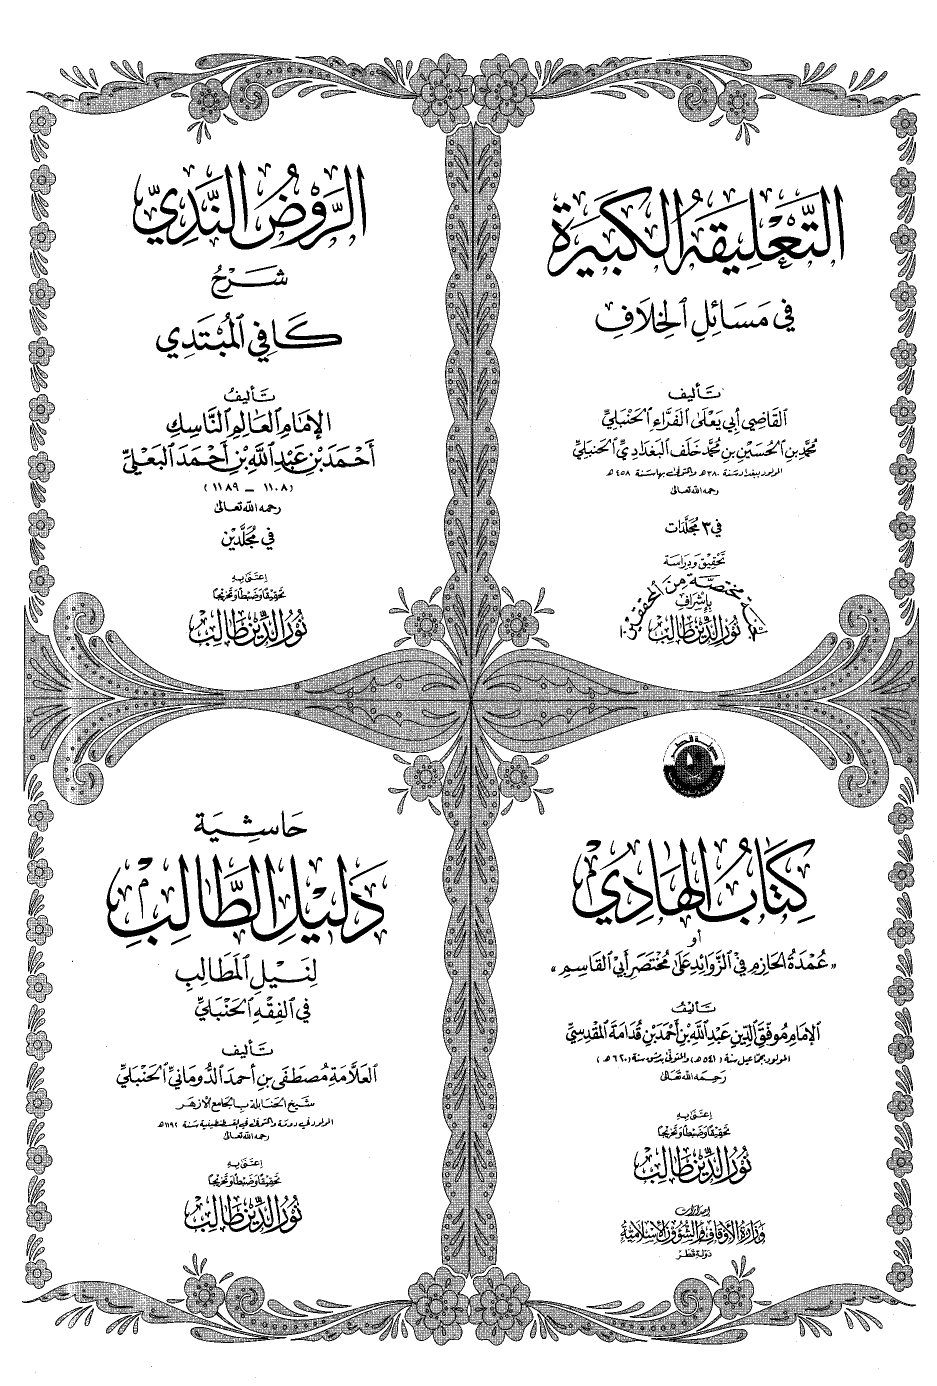 التَّعْلِيقَةُ الْكَبِيرَة
فِي مَسَائِلِ الْخِلَافِ
تَأليف
القَاضِي أَبِي يَعْلَى الفَرَّاءِ الحَنْبَلِيِّ
مُحَمَّد بنِ الحُسَيْنِ بنِ مُحَمَّد خَلَف البَغْدَادِيّ الحَنْبَلِيّ
المولود ببغداد سَنة ٣٨٠هـ والمتوفى بها سَنة ٤٥٨هـ
رحمه الله تعالى
في ٣ مُجَلَّدَات
تَحْقِيق وَدِرَاسَة
لجنة مختصَّة مِنَ المحققين
بإشراف
نُورُ الدِّين طَالِبْ
الرَّوْضُ النَّدِيّ
شَرْحُ
كَافِي الْمُبْتَدِي
تَأليفُ
الإِمَامِ العَالِمِ النَّاسِكِ
أَحْمَدَ بْنِ عَبْدِ اللَّهِ بْنِ أَحْمَدَ البَعْلِيِّ
(١١٠٨ - ١١٨٩)
رحمه الله تعالى
في مُجَلَّدَيْن
إعتَنى بِهِ
تَحقِيقًا وَضَبطًا وَتَخرِيجًا
نُورُ الدِّين طَالِبْ
كِتَابُ الْهَادِيّ
أو
«عُمْدَةُ الحَازِمِ فِي الزَّوَائِدِ عَلَى مُخْتَصَرِ أَبِي القَاسِمِ»
تَأليفُ
الإِمَامِ مُوَفَّقِ الدِّينِ عَبْدِ اللَّهِ بْنِ أَحْمَدَ بْنِ قُدَامَة المَقْدِسِيِّ
المولود بجمّاعيل سنة (٥٤١هـ) والمتوفى بدمشق سنة (٦٢٠هـ)
رَحِمَهُ اللهُ تَعَالَى
إعتَنى بِهِ
تَحقِيقًا وَضَبطًا وَتَخرِيجًا
نُورُ الدِّين طَالِبْ
إصدارات
وَزَارَة الأَوْقَاف وَالشُّؤُون الإسْلَامِيَّة
دَوْلَة قَطَر
حَاشِيَة
دَلِيْلِ الطَّالِبِ
لِنَيْلِ الْمَطَالِبِ
فِي الفِقْهِ الحَنْبَلِيِّ
تَأليف
العَلَّامَةِ مُصْطَفَى بنِ أحمدَ الدُّومَانِيِّ الحَنْبَلِيِّ
شَيخ الحَنَابلة بالجَامع الأزهَر
المولود في دومة والمتوفى في القسطنطينية سَنة ١١٩٢هـ
رحمه الله تعالى
إعتَنى بِهِ
تَحقِيقًا وَضَبطًا وَتَخرِيجًا
نُورُ الدِّين طَالِبْ